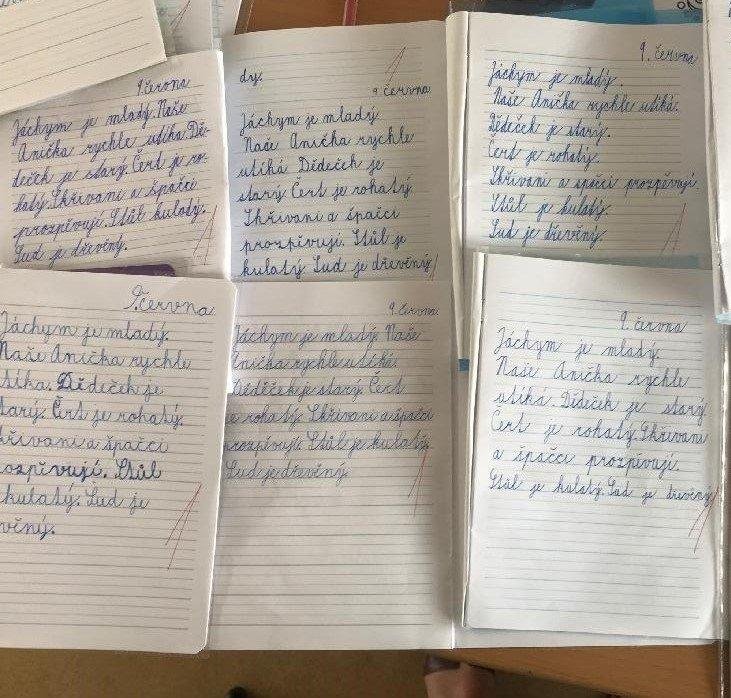 9. června
Jáchym je mladý. Naše
Anička rychle utíka. Dě-
deček je starý. Čert je ro-
hatý. Skřivani a špačci
prozpěvují. Stůl kulatý.
Sud je dřevěný.
dy.
9. červ
Jáchym je mladý
Naše Anička rychle
utíká Dědeček je
starý Čert je rohatý
Skřivani a špačci
prozpívují. Stůl je
kulatý. Sud je dřevěný
9. června
Jáchym je mladý.
Naše Anička rychle utíká.
Dědeček je starý.
Čert je rohatý.
Skřivani a špačci prozpěvují.
Stůl je kulatý.
Sud je dřevěný.
9. června
Jáchym je mladý.
Naše Anička rychle
utíka. Dědeček je
starý. Čert je rohatý.
křivani a špačci
rozpěvují. Stůl
kulatý. Sud je
věný.
9. června
Jáchym je mladý. Naše
Anička rychle utíká.
Dědeček je starý. Čert
je rohatý. Skřivani a špačci
prozpěvují. Stůl je kulatý.
Sud je dřevěný.
9. června
Jáchym je mladý.
Naše Anička rychle
utíká. Dědeček je starý.
Čert je rohatý. Skřivani
a špačci prozpěvují.
Stůl je kulatý. Sud je dřevěný